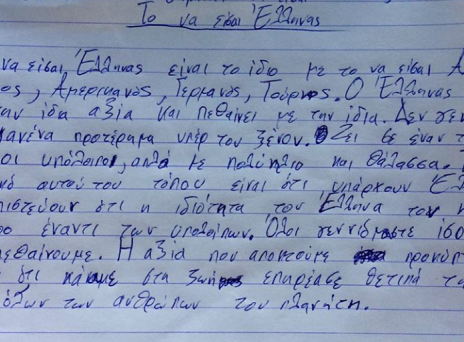 Το να είσαι Έλληνας
να είσαι Έλληνας είναι το ίδιο με το να είσαι
Αμερικανός, Γερμανός, Τούρκος. Ο Έλληνας
την ίδια αξία και πεθαίνει με την ίδια. Δεν
κανένα προτέρημα υπέρ του ξένου. Ζει σε έναν
οι υπόλοιποι, απλά με πολύ ήλιο και θάλασσα.
αυτού του τόπου είναι ότι υπάρχουν
πιστεύουν ότι η ιδιότητα του Έλληνα τον
έναντι των υπολοίπων. Όλοι γεννιόμαστε ίσοι
πεθαίνουμε. Η αξία που αποκτούμε
ότι κάναμε στη ζωή επηρέασε θετικά
όλων των ανθρώπων του πλανήτη.